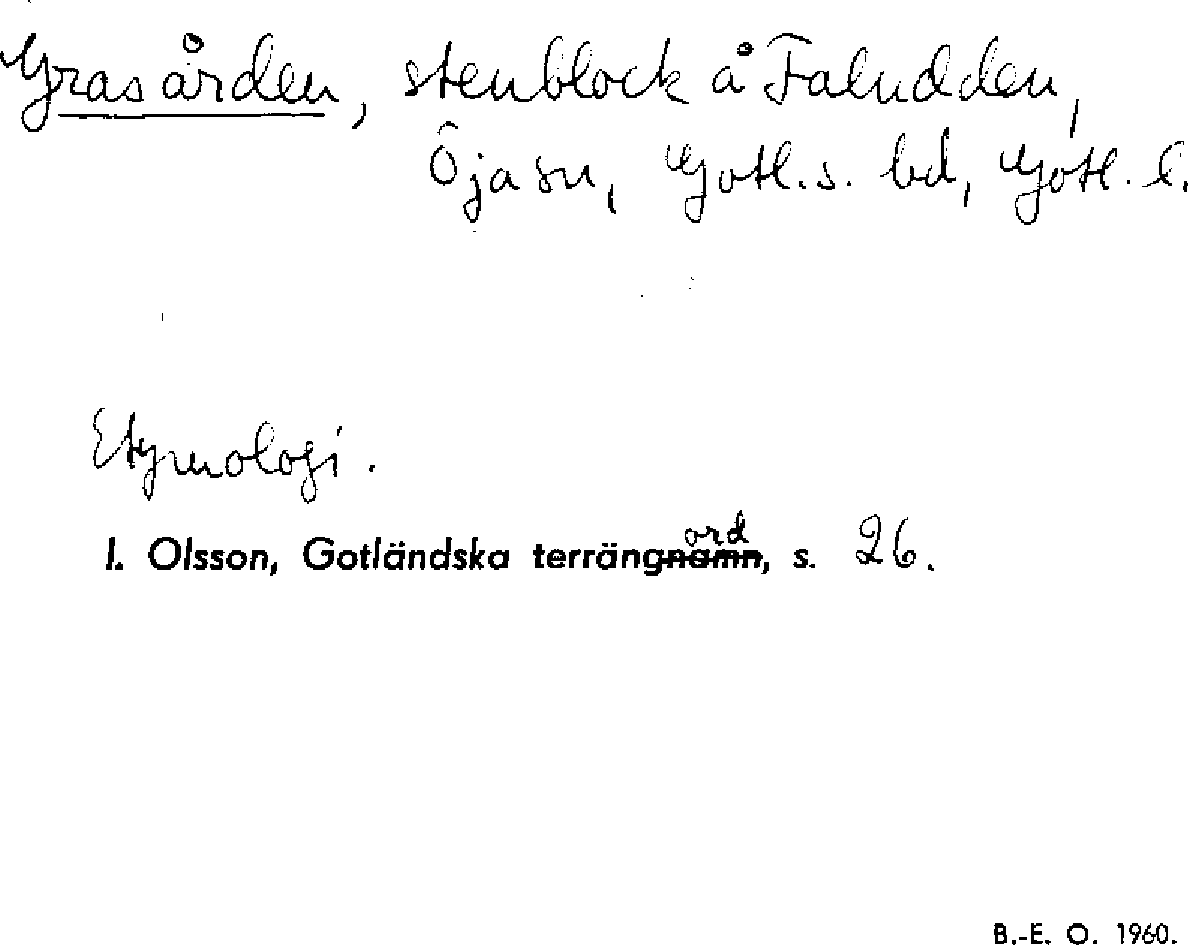 Grasården, stenblock å Faludden,
Öja sn, Gotl. s. bd, Gotl. l.
Etymologi.
I. Olsson, Gotländska terrängnamn ord, s. 26.
B.-E. O. 1960.